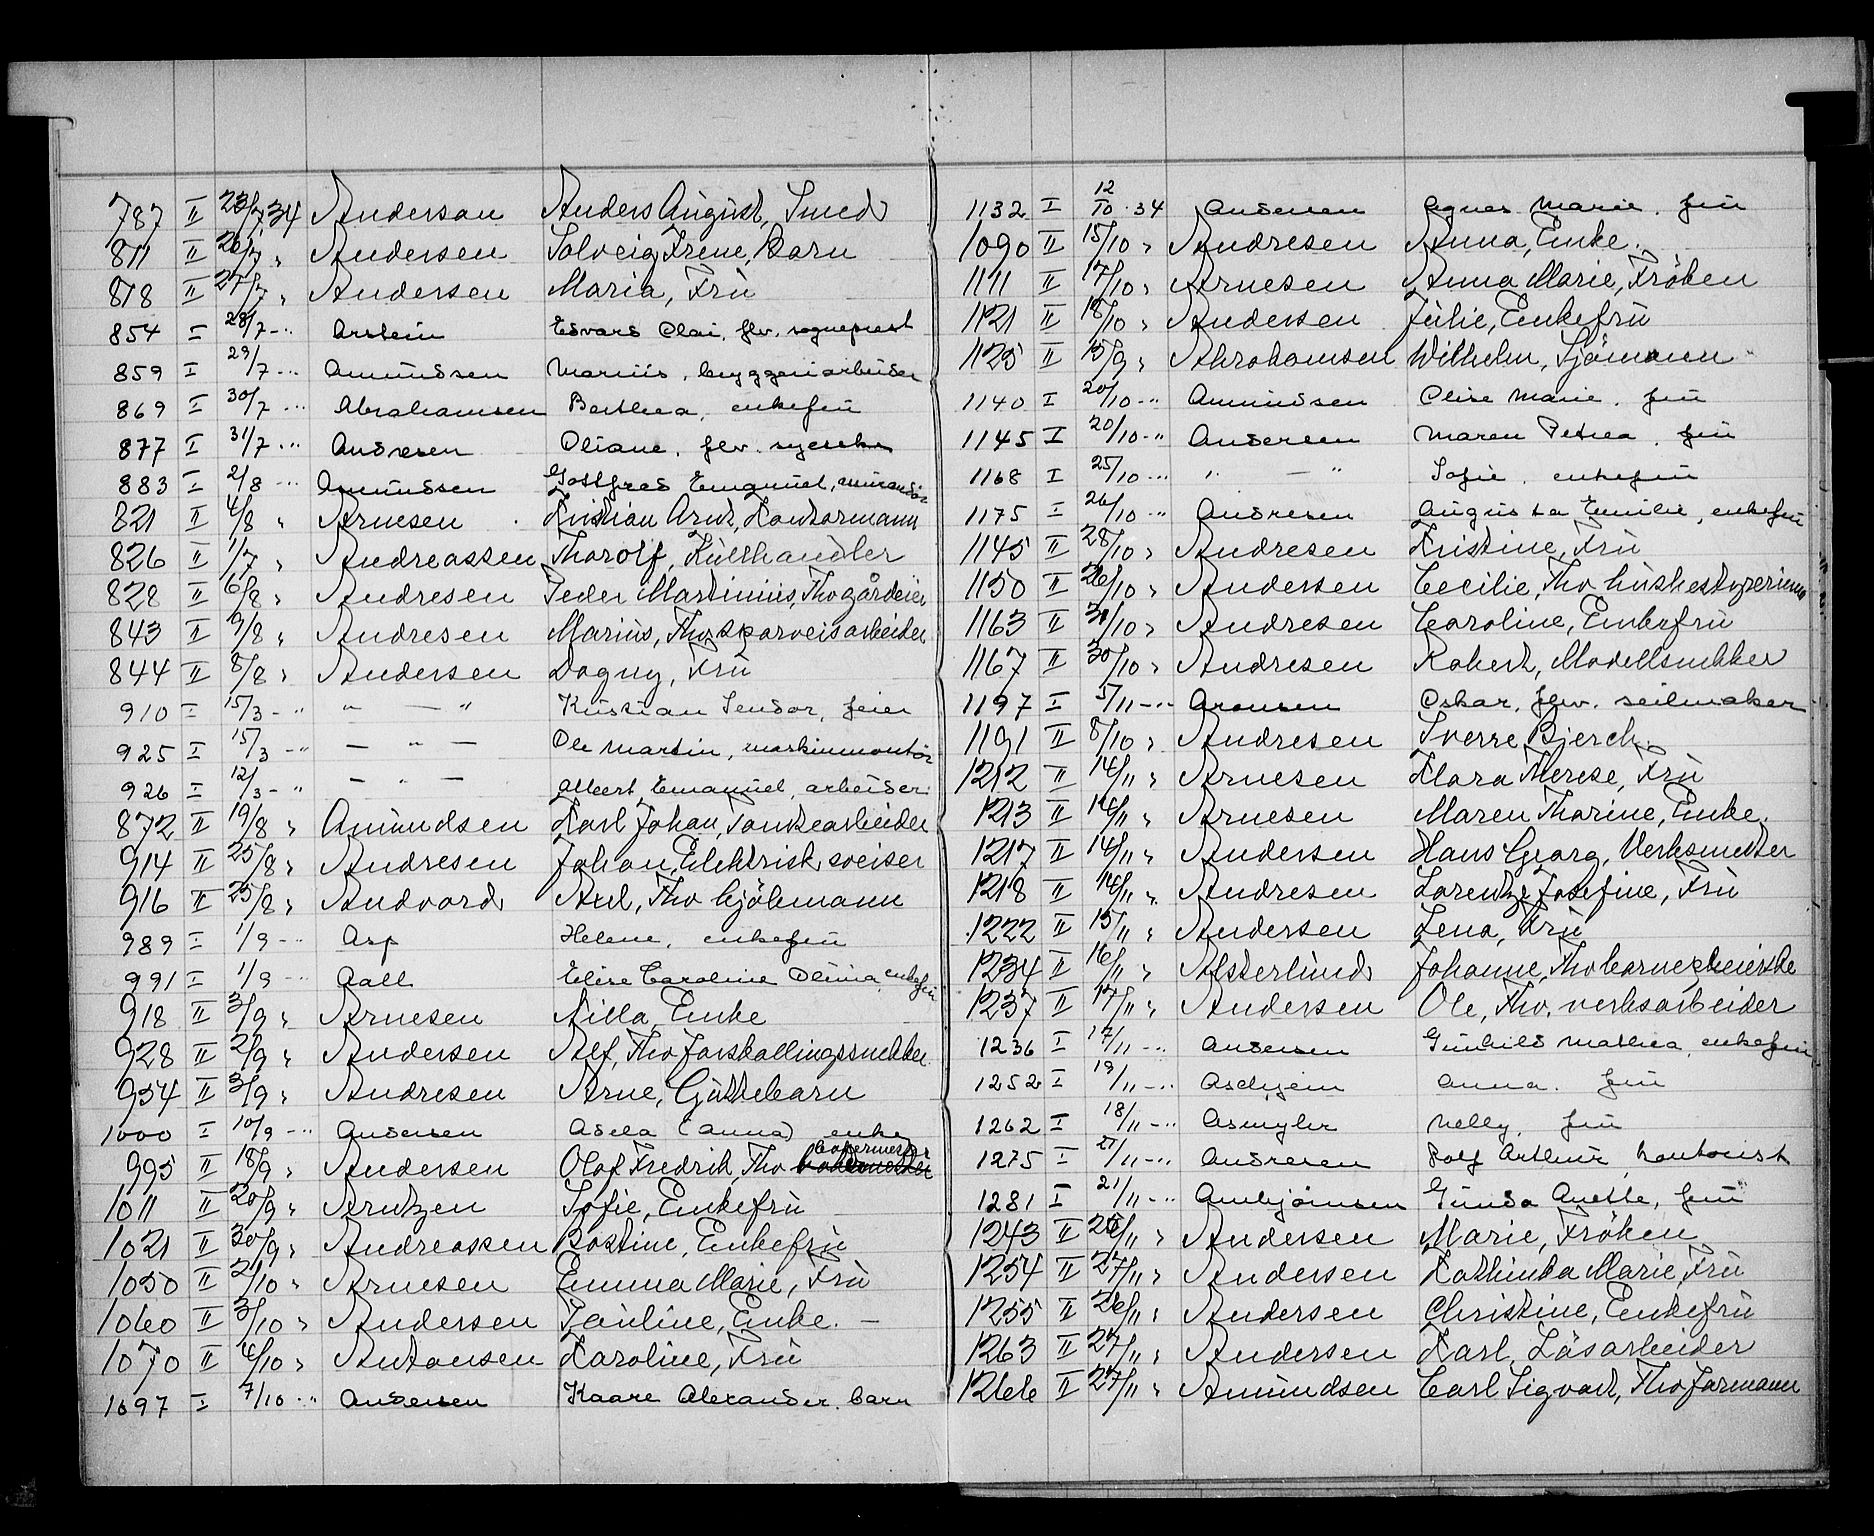 787 II 23/7 34 Anderson Anders August, Smed
811 II 26/7 " Andersen Solveig Irene, Barn
818 II 27/7 " Andersen Maria, Frü
854 I 28/7 - " Arstein Edvard Olai, flv. sogneprest
859 I 29/7 - " Amundsen Marius, bryggeriarbeider
869 I 30/7 - " Abrahamsen Berthea, enkefru
877 I 31/7 - " Andresen Oliane, flv. syerske
883 I 2/8 - " Amundsen Gottfred Emanuel,
821 II 4/8 " Arnesen Kristian Arnt, Kontormann
826 II 1/7 " Andreassen Thorolf, Kullhandler
828 II 6/8 " Andresen Peder Martinius, Fhv gårdeier
843 II 9/8 " Andresen Marius, Fhv sporveisarbeider
844 II 8/8 " Andersen Dagny, Frü
910 I 15/3 - " " — " Kristian Sendor, feier
925 I 15/3 - " — " — Ole Martin, maskinmontör
926 I 12/3 - " — " — Albert Emanuel, arbeider
872 II 19/8 " Amundsen Karl Johan, Tomtearbeider
914 II 25/8 " Andresen Johan, Elektrisk sveiser
916 II 25/8 " Andvord Axel, Fhv Sjömann
989 I 1/9 - " Asp Helene, enkefru
991 I 1/9 - " Aall Elise Caroline Olivia, enkefru
918 II 3/9 " Arnesen Milla, Enke
928 II 2/9 " Andersen Alf, Fhv Forskallingssnekker
954 II 3/9 " Andresen Arne, Guttebarn
1000 I 10/9 - " Andersen Asela (Anna) enke
995 II 18/9 " Andersen Olaf Fredrik, Fhv
1011 II 20/9 " Arntzen Sofie, Enkefru
1021 II 30/9 " Andreassen Bostine, Enkefru
1050 II 2/10 " Arnesen Emma Marie, Frü
1060 II 3/10 " Andersen Pauline, Enke. —
1070 II 4/10 " Antonsen Karoline, Frü
1097 I 7/10 - " Andersen Kaare Alexander, barn
1132 I 12/10 - 34 Andersen Agnes Marie, fru
1090 II 15/10 " Andresen Anna, Enke.
1111 II 17/10 " Arnesen Anna Marie, Fröken
1121 II 18/10 " Andersen Julie, Enkefru
1125 II 15/9 " Abrahamsen Wilhelm, Sjömann
1140 I 20/10 - " Amundsen Elise Marie, fru
1145 I 20/10 - " Andersen Maren Petrea, fru
1168 I 25/10 - " " — " Sofie, enkefru
1175 I 26/10 - " Andresen Augusta Emilie, enkefru
1145 II 28/10 " Andresen Kristine, Frü
1150 II 26/10 " Andersen Cecilie, Fhv
1163 II 31/10 " Andresen Caroline, Enkefru
1167 II 30/10 " Andresen Robert, Modellsnekker
1197 I 5/11 - " Aronsen Oskar, flv. seilmaker
1191 II 8/10 " Andresen Sverre Bjerch.
1212 II 14/11 " Arnesen Klara Therese, Frü
1213 II 14/11 " Arnesen Maren Thorine, Enke.
1217 II 14/11 " Andersen Hans Georg, Verksmester
1218 II 14/11 " Andresen Lorentze Josefine, Frü
1222 II 15/11 " Andersen Lena, Frü
1234 II 16/11 " Alsterlund Johanne, Fhv barnepleierske
1237 II 17/11 " Andersen Ole, Fhv. verksarbeider
1236 I 17/11 - " Andersen Gunhild Mathea, enkefru
1252 I 19/11 - " Aschjem Anna, fru
1262 I 18/11 - " Asmyhr Nelly, fru
1275 I 21/11 - " Andresen Rolf Arthur, kontorist
1281 I 21/11 - " Arnbjörnsen Gunda Anette, fru
1243 II 25/11 " Andersen Marie, Fröken
1254 II 27/11 " Andersen Kathinka Marie, Frü
1255 II 26/11 " Andersen Christine, Enkefru
1263 II 27/11 " Andersen Karl, Løsarbeider
1266 II 27/11 " Amundsen Carl Sigvart, Fhv Formann